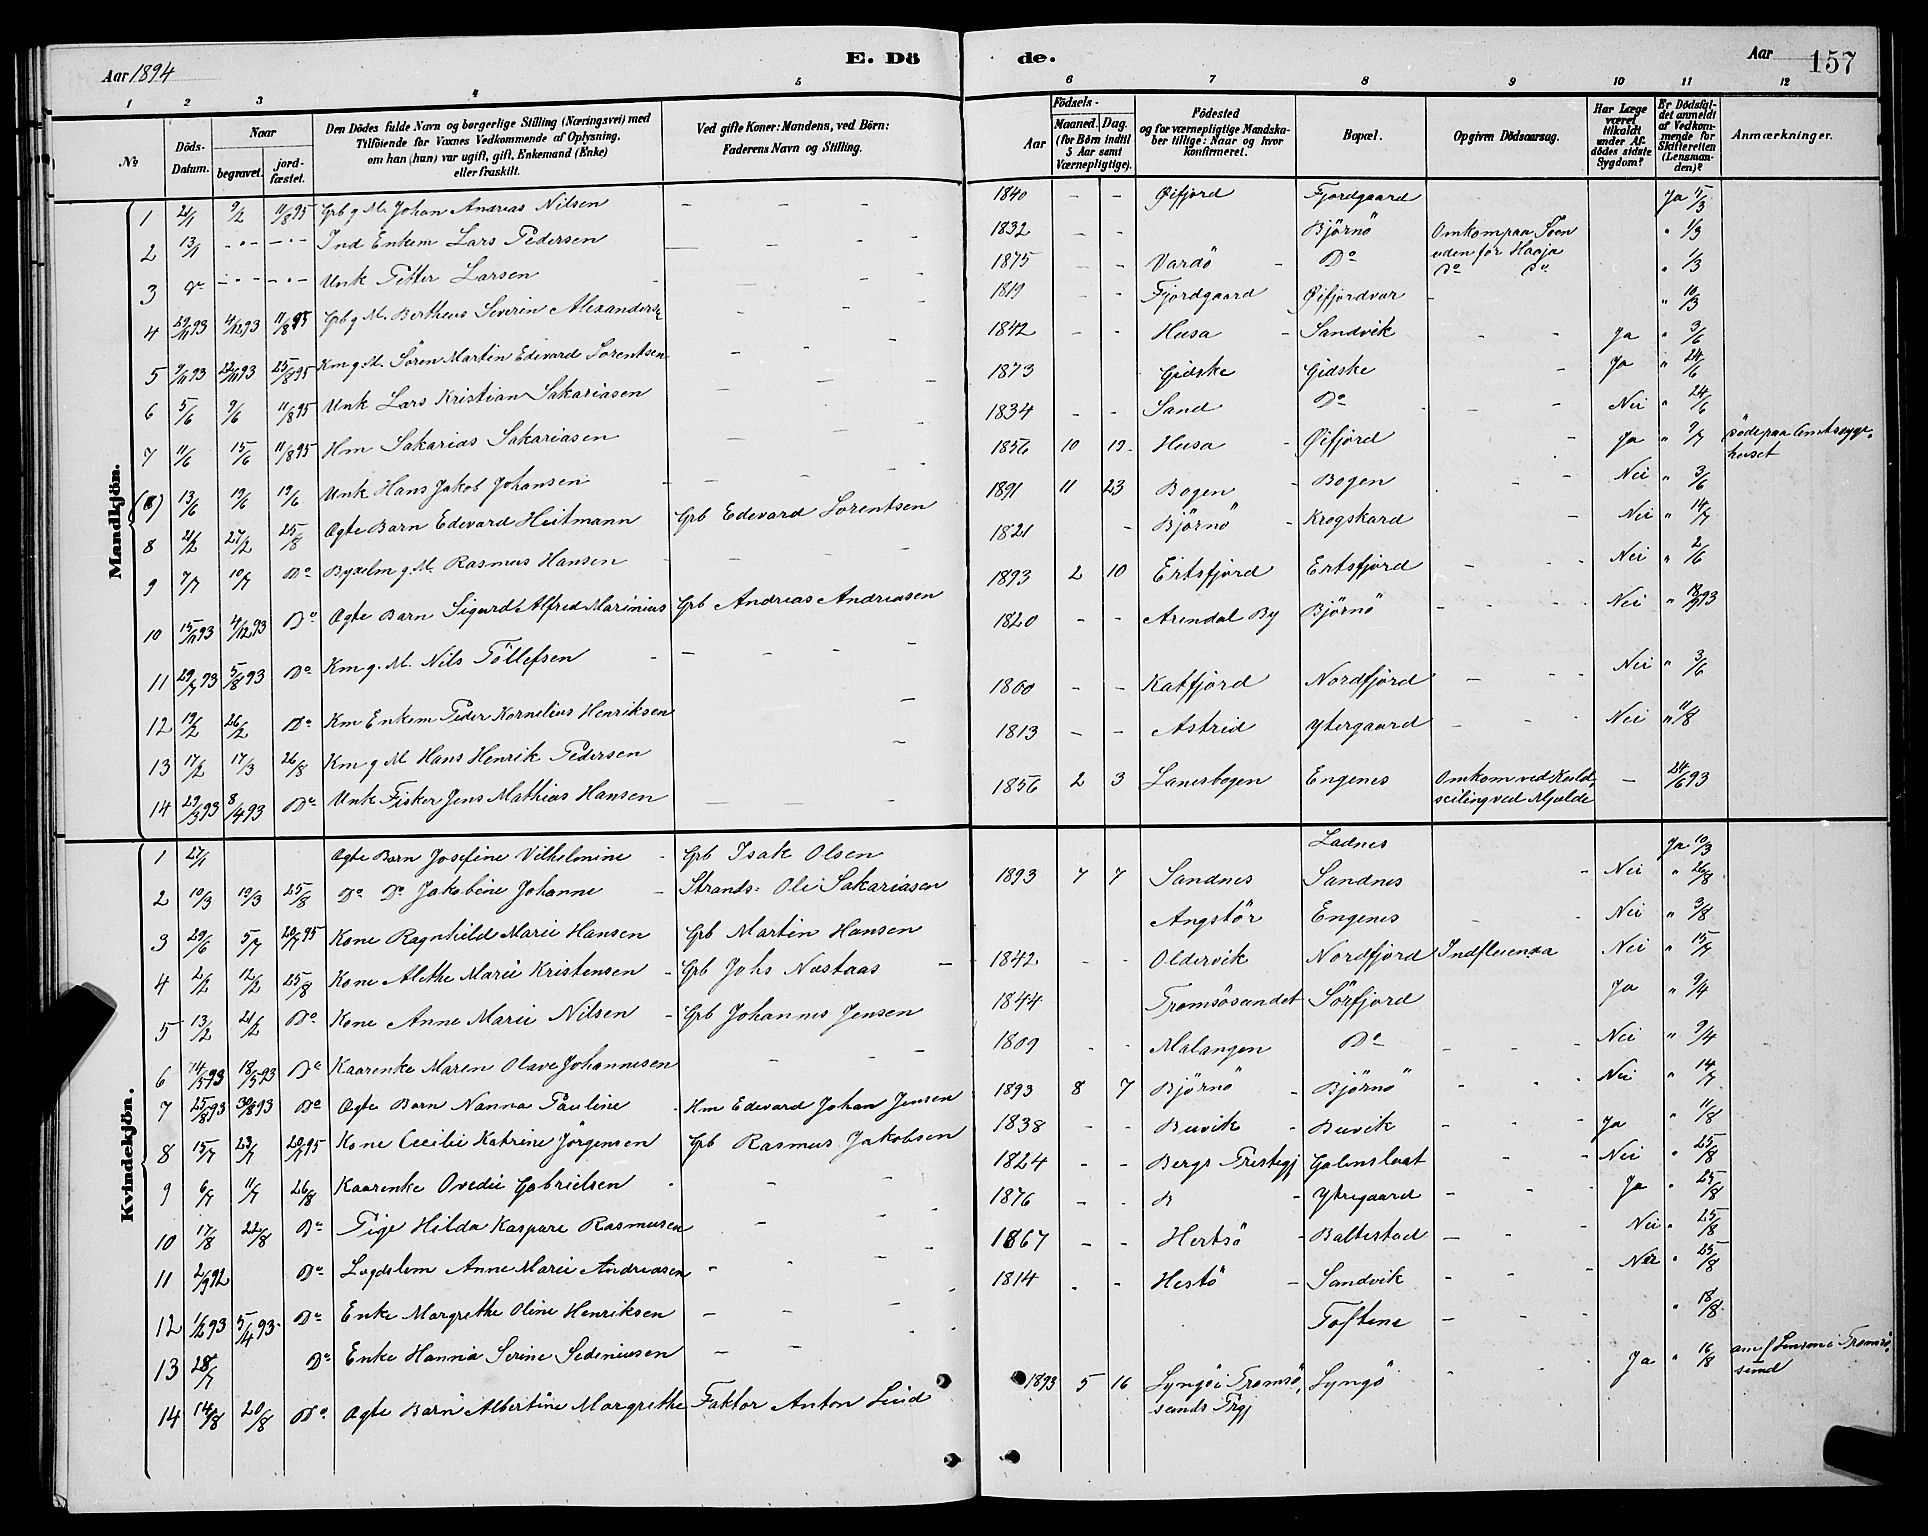 Aar 1894
E. Dö
de.
Aar
157
1 2 3 4 5 6 7 8 9 10 11 12
№
Döds-Datum.
Naar
begravet. jord-fæstet.
Den Dödes fulde Navn og borgerlige Stilling (Næringsvei) med
Tilföiende for Voxnes Vedkommende af Oplysning,
om han (hun) var ugift, gift, Enkemand (Enke)
eller fraskilt.
Ved gifte Koner: Mandens, ved Börn:
Faderens Navn og Stilling.
Födsels-
Aar Maaned. Dag.
(for Børn indtil 5 Aar samt Værnepligtige).
Födested
og for værnepligtige Mandska-
ber tillige: Naar og hvor
konfirmeret.
Bopæl.
Opgiven Dödsaarsag.
Har Læge været tilkaldt under Af-dödes sidste Sygdom?
Er Dödsfal-det anmeldt af Vedkom-mende for Skifteretten (Lensman-den)?
Anmærkninger.
Mandkjön.
1 21/1 9/2 11/8 95 Grb g M. Johan Andreas Nilsen - 1840 - - Øifjord Fjordgaard Ja
2 13/1 Ind Enkem Lars Pedersen 1832 - - Björnö Omkom paa Söen
uden for Haaja " 1/3
3 Do Unk Petter Larsen 1875 - - Vardö Do Do Do " 1/3
4 29/11 93 4/12 93 11/8 95 Grb g M. Bertheus Severin Alexanders 1819 - - Fjordgaard Øifjordvær " 10/3
5 9/11 93 22/11 93 25/8 95 Km g. M. Sören Martin Edevard Lorentsen 1842 - - Husa Sandvik Ja " 3/6
6 5/6 9/6 11/8 95 Unk Lars Kristian Sakariasen 1873 Gidske Gidske Ja " 24/6
7 11/6 15/6 11/8 95 Hm Sakarias Sakariasen 1834 - - Sand Do Nei " 24/6
(8) 13/6 19/6 19/6 Unk Hans Jakob Johansen 1856 10 19 Husa Øifjord Ja " 9/7 döde paa Amtssyge-
huset
8 21/2 27/2 25/8 Ægte Barn Edevard Heitmann Grb Edevard Lorentsen 1891 11 23 Bogen Bogen Nei " 3/6
9 7/7 10/7 Do Byxelm g. M. Rasmus Hansen 1821 - Björnö Krogskard Nei " 14/7
10 15/11 93 4/12 93 Do Ægte Barn Sigurd Alfred Marinius Grb Andreas Andreasen 1893 2 10 Ertsfjord Ertsfjord Nei " 2/6
11 29/7 93 5/8 93 Do Km g. M. Nils Töllefsen 1820 - - Arendal By Björnö Nei " 93
12 19/2 26/2 Do Km Enkem Peder Kornelius Henriksen 1860 - - Katfjord Nordfjord Nei " 3/6
13 17/2 17/3 26/8 Km g M Hans Henrik Pedersen 1813 - - Astrid Ytergaard Nei " 11/8
14 29/3 93 8/4 93 Do Unk Fisker Jens Mathias Hansen 1856 2 3 Lanesbogen Engenes Omkom ved Kuld-
seiling ved Mjelde - 24/6 93
Kvindekjön.
1 27/1 Ægte Barn Josefine Vilhelmine Grb Isak Olsen Ladnes Ja 10/3
2 10/3 19/3 25/8 Do Do Jakobine Johanne Strands: Ole Sakariasen 1893 7 7 Sandnes Sandnes Nei " 26/8
3 29/6 5/7 20/7 95 Kone Ragnhild Marie Hansen Grb Martin Hansen Angstör Engenes Nei " 3/8
4 2/2 12/2 25/8 Kone Alethe Marie Kristensen Grb Johs Næstaas 1842 - - Oldervik Nordfjord Indfluenza Nei " 15/7
5 13/2 21/2 Do Kone Anne Marie Nilsen Grb Johannes Jensen 1844 Tromsösundet Sörfjord Ja " 9/4
6 14/5 93 18/5 93 Do Kaarenke Maren Olave Johannesen 1809 - - Malangen Do Nei " 9/4
7 25/8 93 30/8 93 Do Ægte Barn Nanna Pauline Hm Edevard Johan Jensen 1893 8 7 Björnö Björnö Nei " 14/7
8 15/7 23/7 20/7 95 Kone Cecilie Katrine Jörgensen Grb Rasmus Jakobsen 1838 Buvik Buvik Ja " 11/8
9 6/7 11/7 26/8 Kaarenke Ovedie Gabrielsen 1824 - - Bergs Prestegj Galenslaat Nei " 25/8
10 17/8 22/8 Do Pige Hilda Kaspara Rasmusen 1876 - - Ytregaard Ja " 25/8
11 2/9 92 Do Lægdslem Anne Marie Andreasen 1867 - - Hertsö Baltestad Nei " 25/8
12 1/2 93 5/4 93 Do Enke Margrethe Oline Henriksen 1814 - - Hestö Sandvik Nei " 25/8
13 28/7 Do Enke Hanna Serine Sedeniusen Toftene " 18/8
14 14/8 20/8 Do Ægte Barn Albertine Margrethe Faktor Anton Lund 1893 5 16 Lyngö i Tromsö-
sunds Prgj Lyngö Ja " 16/8 anm f Lensm i Tromsö-
sund